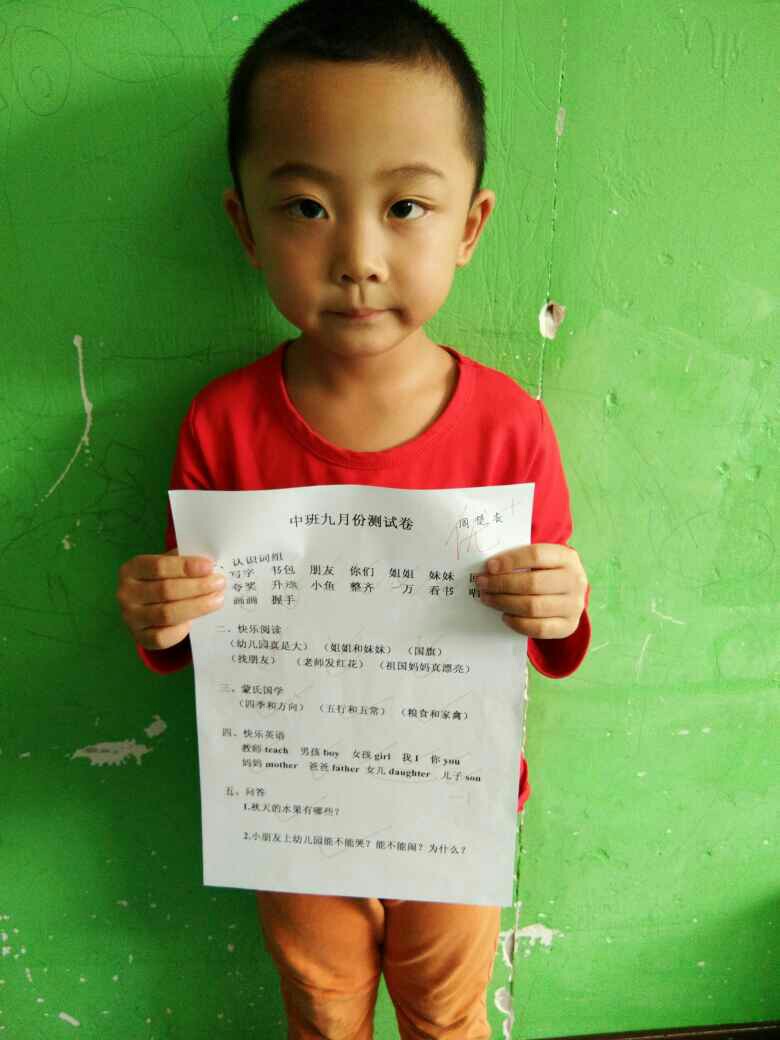 中班九月份测试卷
优+
、认识词组
写字 书包 朋友 你们 姐姐 妹妹
夸奖 升旗 小鱼 整齐 一万 看书 唱
画画 握手
二、快乐阅读
（幼儿园真是大）（姐姐和妹妹）（国旗）
（找朋友）（老师发红花）（祖国妈妈真漂亮）
三、蒙氏国学
（四季和方向）（五行和五常）（粮食和家禽）
四、快乐英语
教师 teach 男孩 boy 女孩 girl 我 I 你 you
妈妈 mother 爸爸 father 女儿 daughter 儿子 son
五、问答
1.秋天的水果有哪些？
2.小朋友上幼儿园能不能哭？能不能闹？为什么？